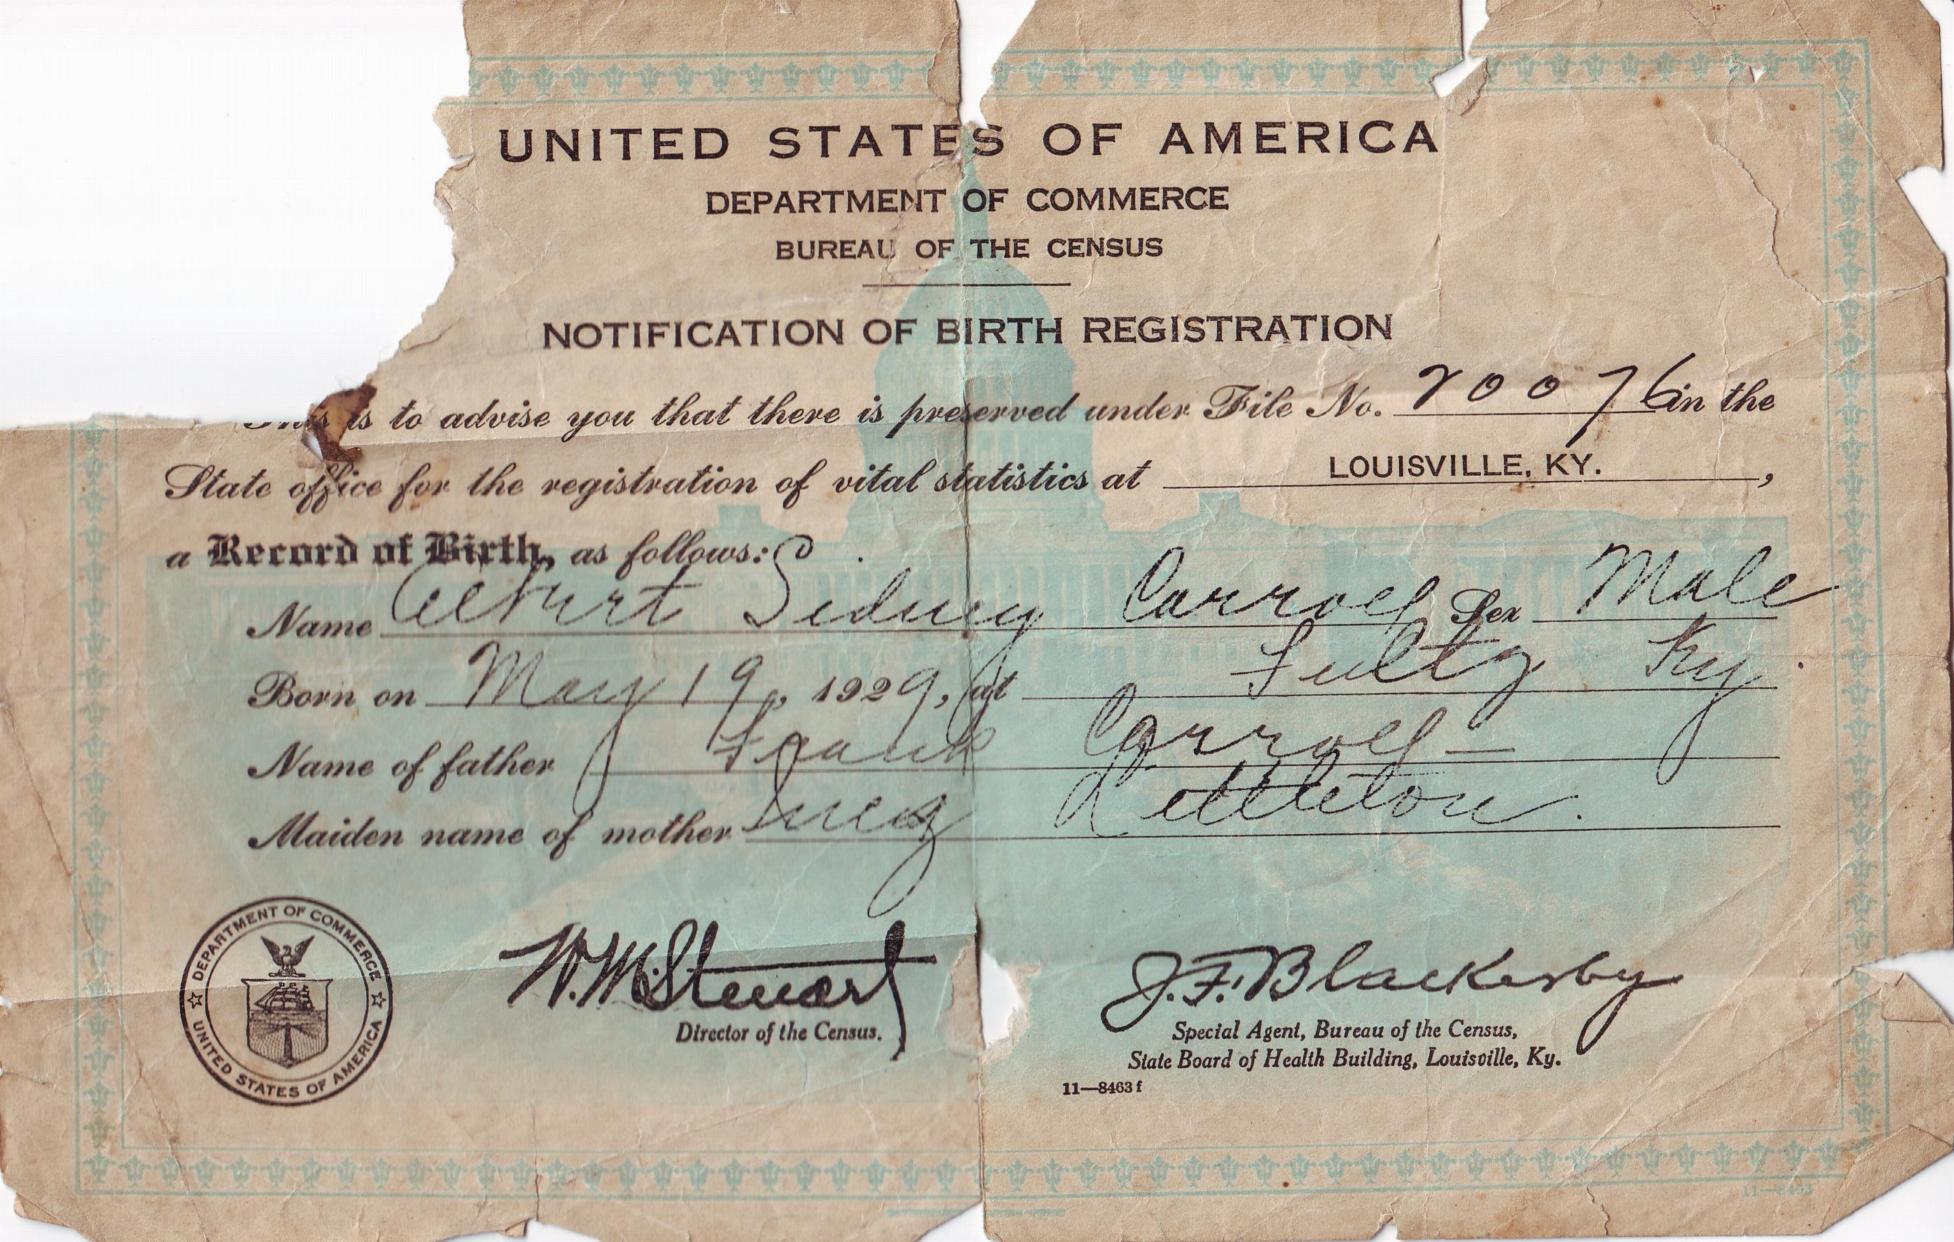 UNITED STATES OF AMERICA
DEPARTMENT OF COMMERCE
BUREAU OF THE CENSUS
NOTIFICATION OF BIRTH REGISTRATION
This is to advise you that there is preserved under File No. 20076 in the
State office for the registration of vital statistics at LOUISVILLE, KY.,
a Record of Birth, as follows:
Name Albert Sidney Carroll Sex Male
Born on May 19, 1929, at Fultz Ky.
Name of father Frank Carroll
Maiden name of mother Inez Littleton.
DEPARTMENT OF COMMERCE
UNITED STATES OF AMERICA
W. M. Steuart
Director of the Census.
J. F. Blackerby
Special Agent, Bureau of the Census,
State Board of Health Building, Louisville, Ky.
11—8463f
11—8463